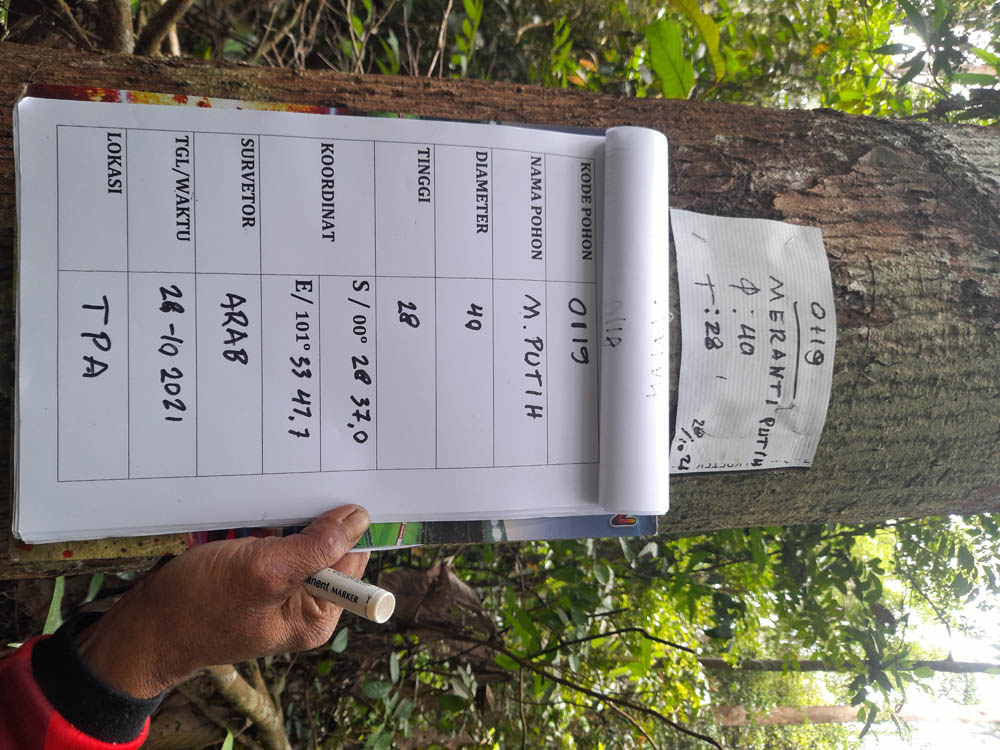 0119
MERANTI PUTIH
Φ : 40
T : 28
28/10 21
KODE POHON 0119
NAMA POHON M. PUTIH
DIAMETER 40
TINGGI 28
KOORDINAT
S / 00° 28 37,0
E/ 101° 33 47,7
SURVETOR ARAB
TGL/WAKTU 28-10 2021
LOKASI TPA
MARKER